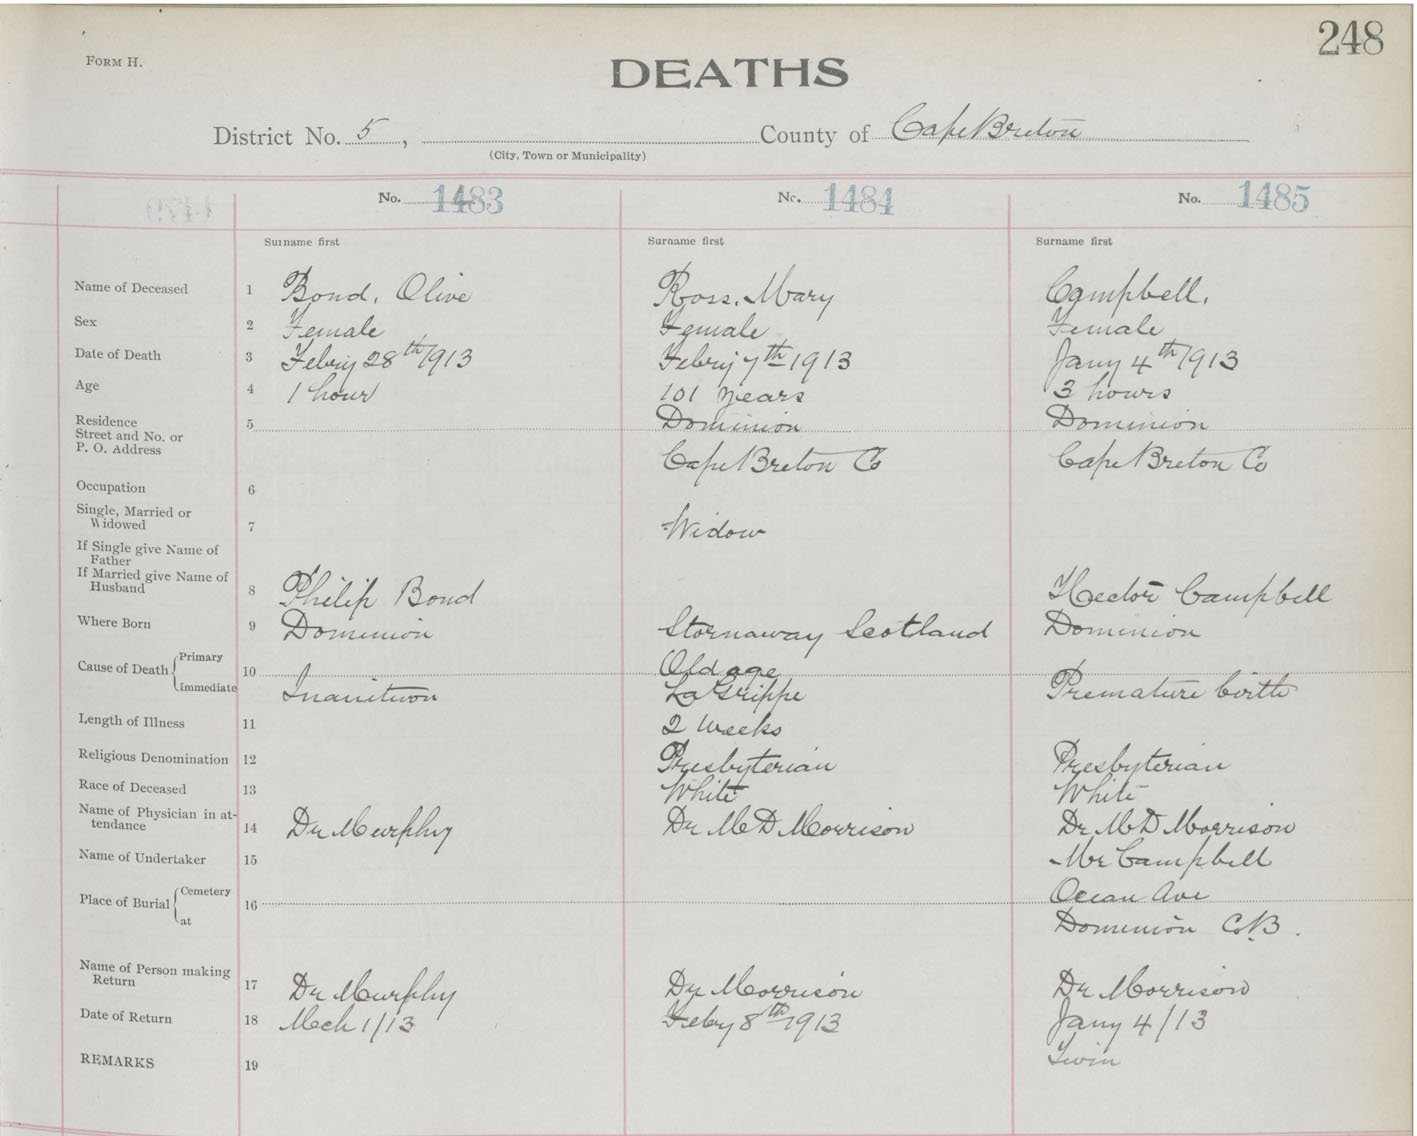 248
FORM H.
DEATHS
District No. 5, County of Cape Breton
(City, Town or Municipality)
No. 1483 No. 1484 No. 1485
Surname first Surname first Surname first
Name of Deceased 1 Bond, Olive Ross, Mary Campbell,
Sex 2 Female Female Female
Date of Death 3 Febry 28th 1913 Febry 7th 1913 Jany 4th 1913
Age 4 1 hour 101 years 3 hours
Residence 5 Dominion Dominion
Street and No. or
P. O. Address Cape Breton Co Cape Breton Co
Occupation 6
Single, Married or
Widowed 7 Widow
If Single give Name of
Father
If Married give Name of
Husband 8 Philip Bond Hector Campbell
Where Born 9 Dominion Stornaway Scotland Dominion
Cause of Death Primary 10 Old age
Immediate Inanition La Grippe Premature birth
Length of Illness 11 2 weeks
Religious Denomination 12 Presbyterian Presbyterian
Race of Deceased 13 White White
Name of Physician in at-
tendance 14 Dr Murphy Dr McD Morrison Dr McD Morrison
Name of Undertaker 15 Mr Campbell
Place of Burial Cemetery 16 Ocean Ave
at Dominion C.B.
Name of Person making
Return 17 Dr Murphy Dr Morrison Dr Morrison
Date of Return 18 Mch 1/13 Feby 8th 1913 Jany 4/13
REMARKS 19 Twin